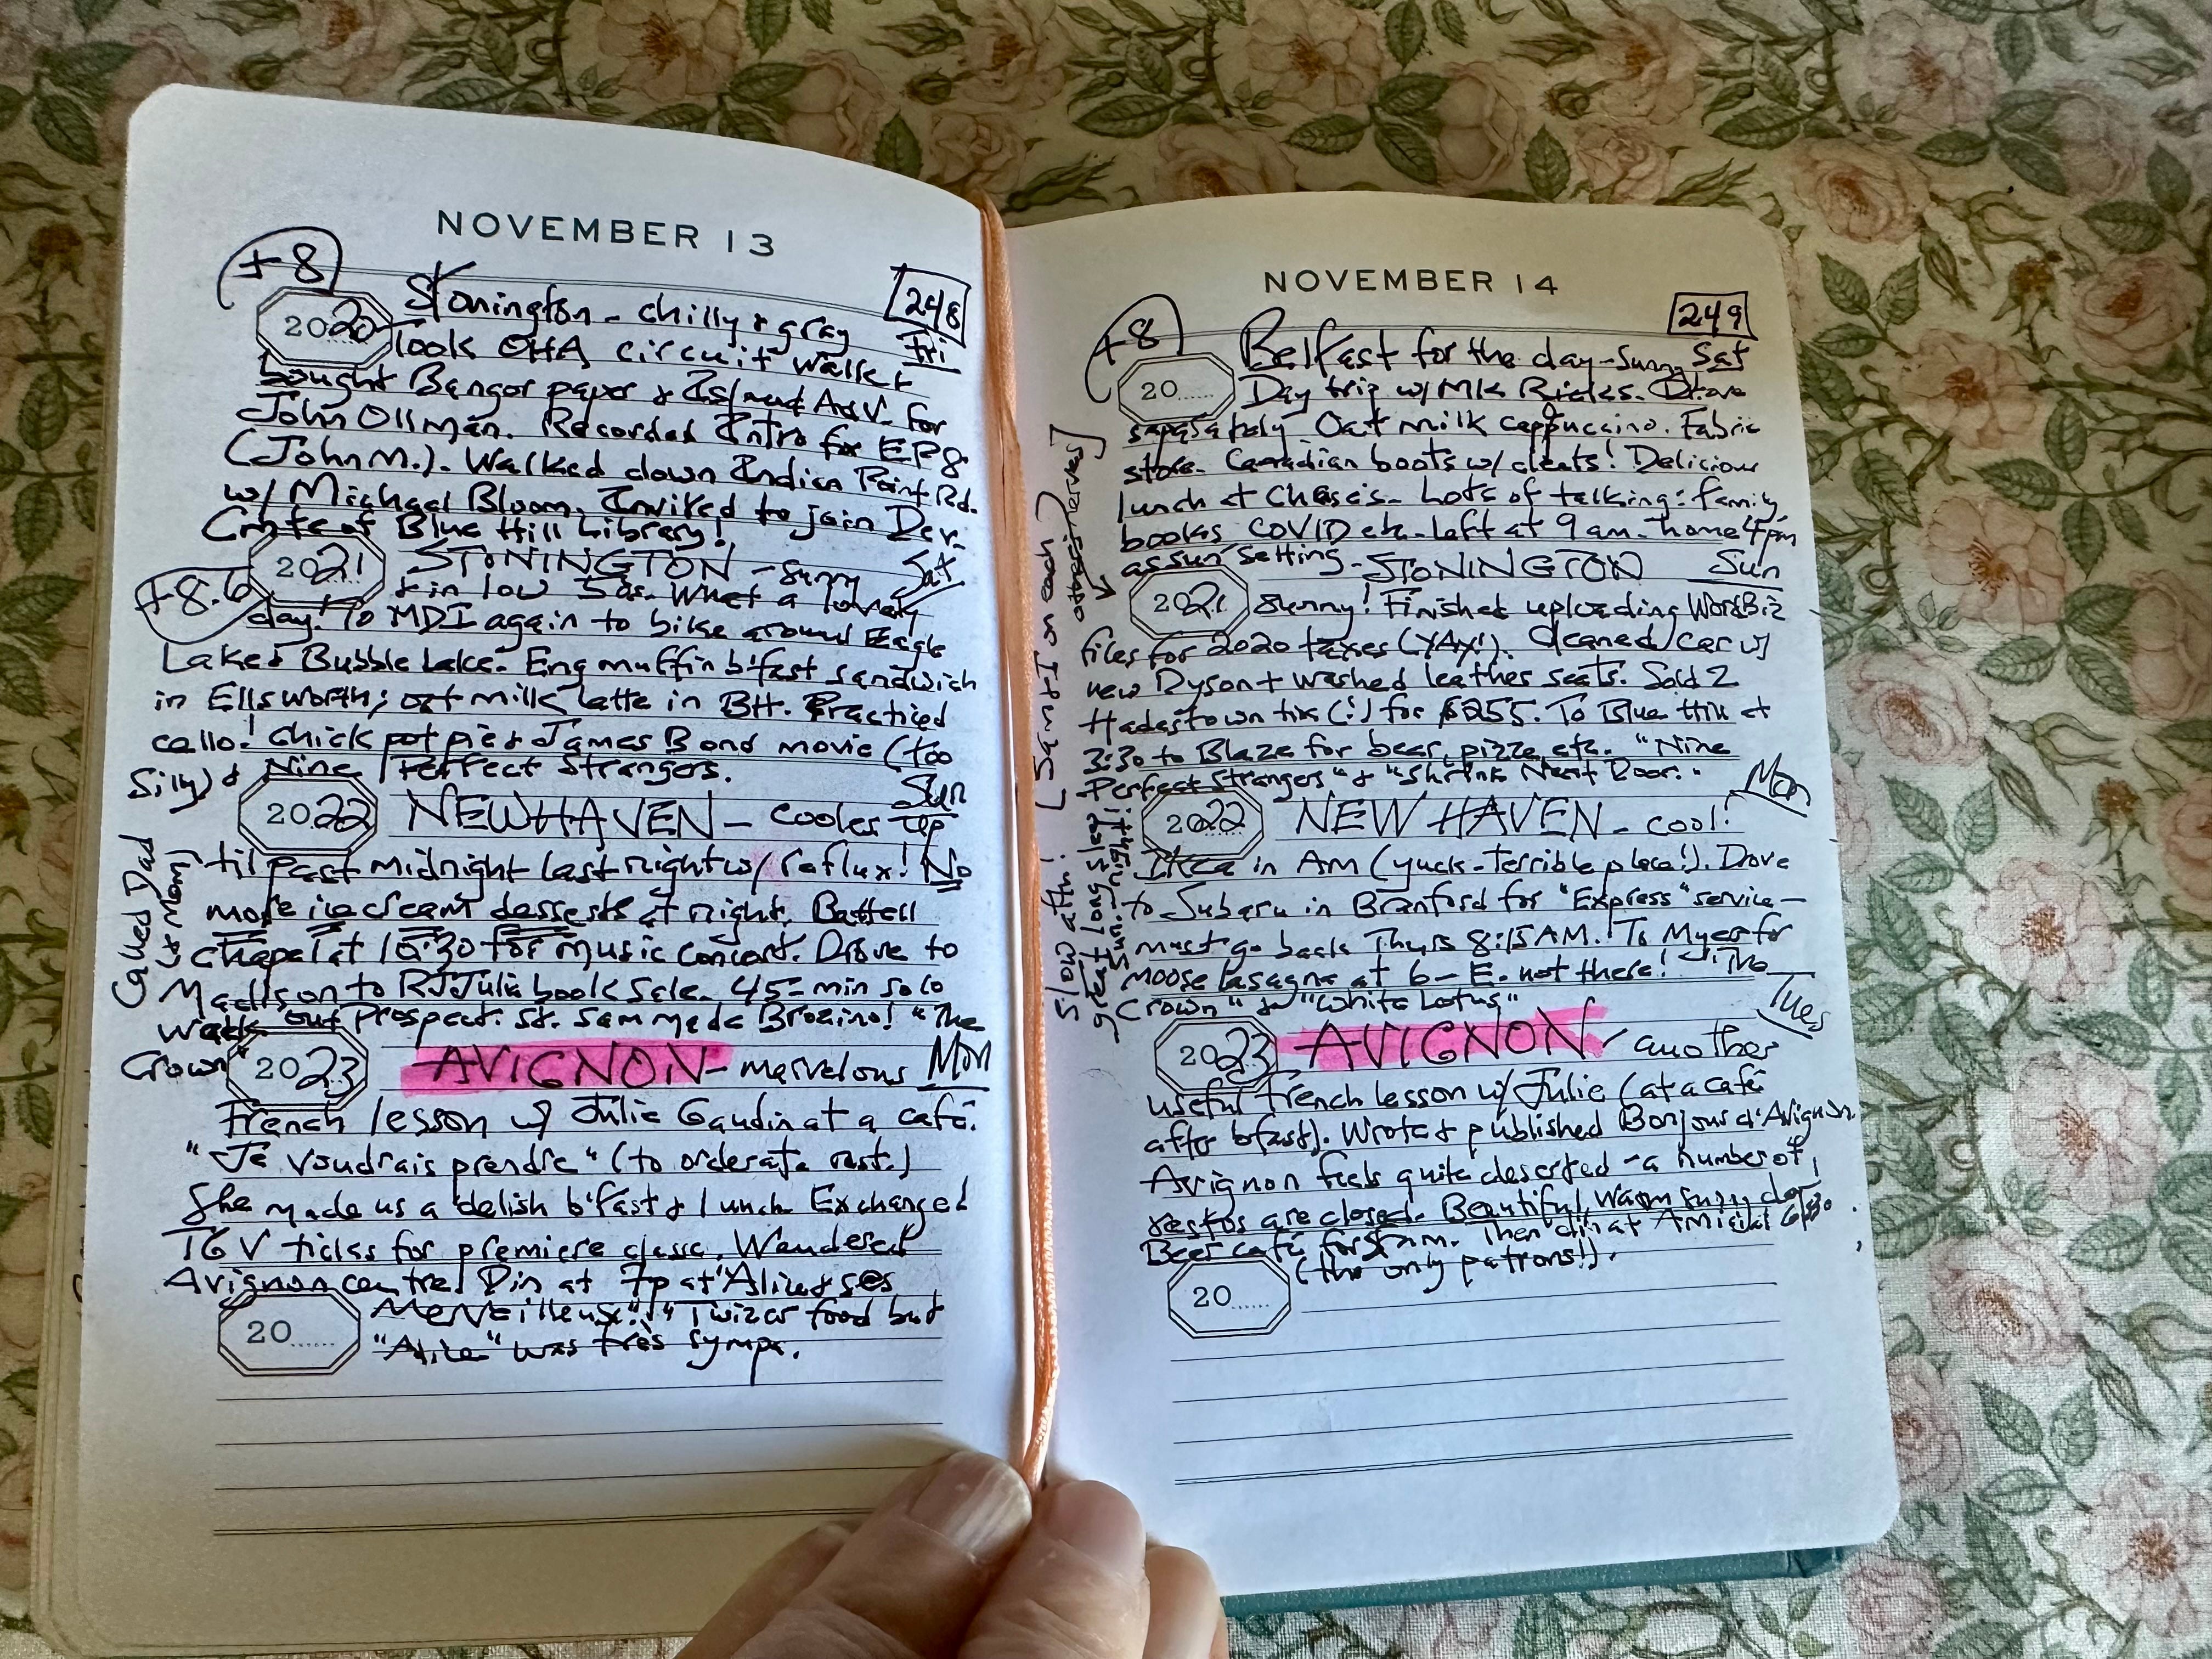 NOVEMBER 13
+8
248
2020 Stonington - chilly & gray Fri
Took OHA circuit walk &
bought Bangor paper & Island Adv. for
John Ollman. Recorded Intro for EP8
(John M.). Walked down Indian Point Rd.
w/ Michael Bloom. Invited to join Dev.
Cmte of Blue Hill Library!
2021 STONINGTON - sunny Sat
+8.6
& in low 50s. What a lovely
day! To MDI again to bike around Eagle
Lake & Bubble Lake. Eng muffin b'fast sandwich
in Ellsworth; oat milk latte in BH. Practiced
cello! Chick pot pie & James Bond movie (too
silly) & Nine Perfect Strangers.
2022 NEW HAVEN - cooler Sun
Up
'til past midnight last night w/ reflux! No
more ice cream desserts at night. Battell
chapel at 10:30 for music concert. Drove to
Madison to RJ Julia book sale. 45-min solo
walk out Prospect St. Sam made Bronzino! "The
Crown"
Called Dad
(& Mom)
2023 AVIGNON - marvelous Mon
French lesson w/ Julie Gaudin at a café.
"Je voudrais prendre" (to order at a rest.)
She made us a delish b'fast & lunch. Exchanged
TGV ticks for premiere classe. Wandered
Avignon centre. Din at 7p at "Alice & ses
Merveilleux". food but
"Alice" was très sympa.
20
NOVEMBER 14
+8
249
20 Belfast for the day - sunny Sat
Day trip w/ MK Ricks. Drove
separately. Oat milk cappuccino. Fabric
store. Canadian boots w/ cleats! Delicious
lunch at Chase's. Lots of talking: family,
books, COVID etc. Left at 9 am - home 4 pm
as sun setting.
STONINGTON Sun
2021 Sunny! Finished uploading WordBiz
files for 2020 taxes (YAY!). Cleaned car w/
new Dyson + washed leather seats. Sold 2
Hadestown tix (!) for $255. To Blue Hill at
3:30 to Blaze for beer, pizza, etc. "Nine
Perfect Strangers" & "Shrink Next Door."
2022 NEW HAVEN - cool! Mon
Ikea in AM (yuck - terrible place!). Drove
to Subaru in Branford for "Express" service -
must go back Thurs 8:15 AM! To Myers for
moose lasagne at 6 - E. not there! "The
Crown" & "White Lotus"
slow attn!
great long sleep
Sun. night!
[Sam & I on each
other's nerves]
2023 AVIGNON - another Tues
useful French lesson w/ Julie (at a café
after bfast). Wrote & published Bonjour d'Avignon.
Avignon feels quite deserted - a number of
restos are closed. Beautiful, warm sunny day.
Beer café for 5pm. Then din at 6:30
(the only patrons!).
20